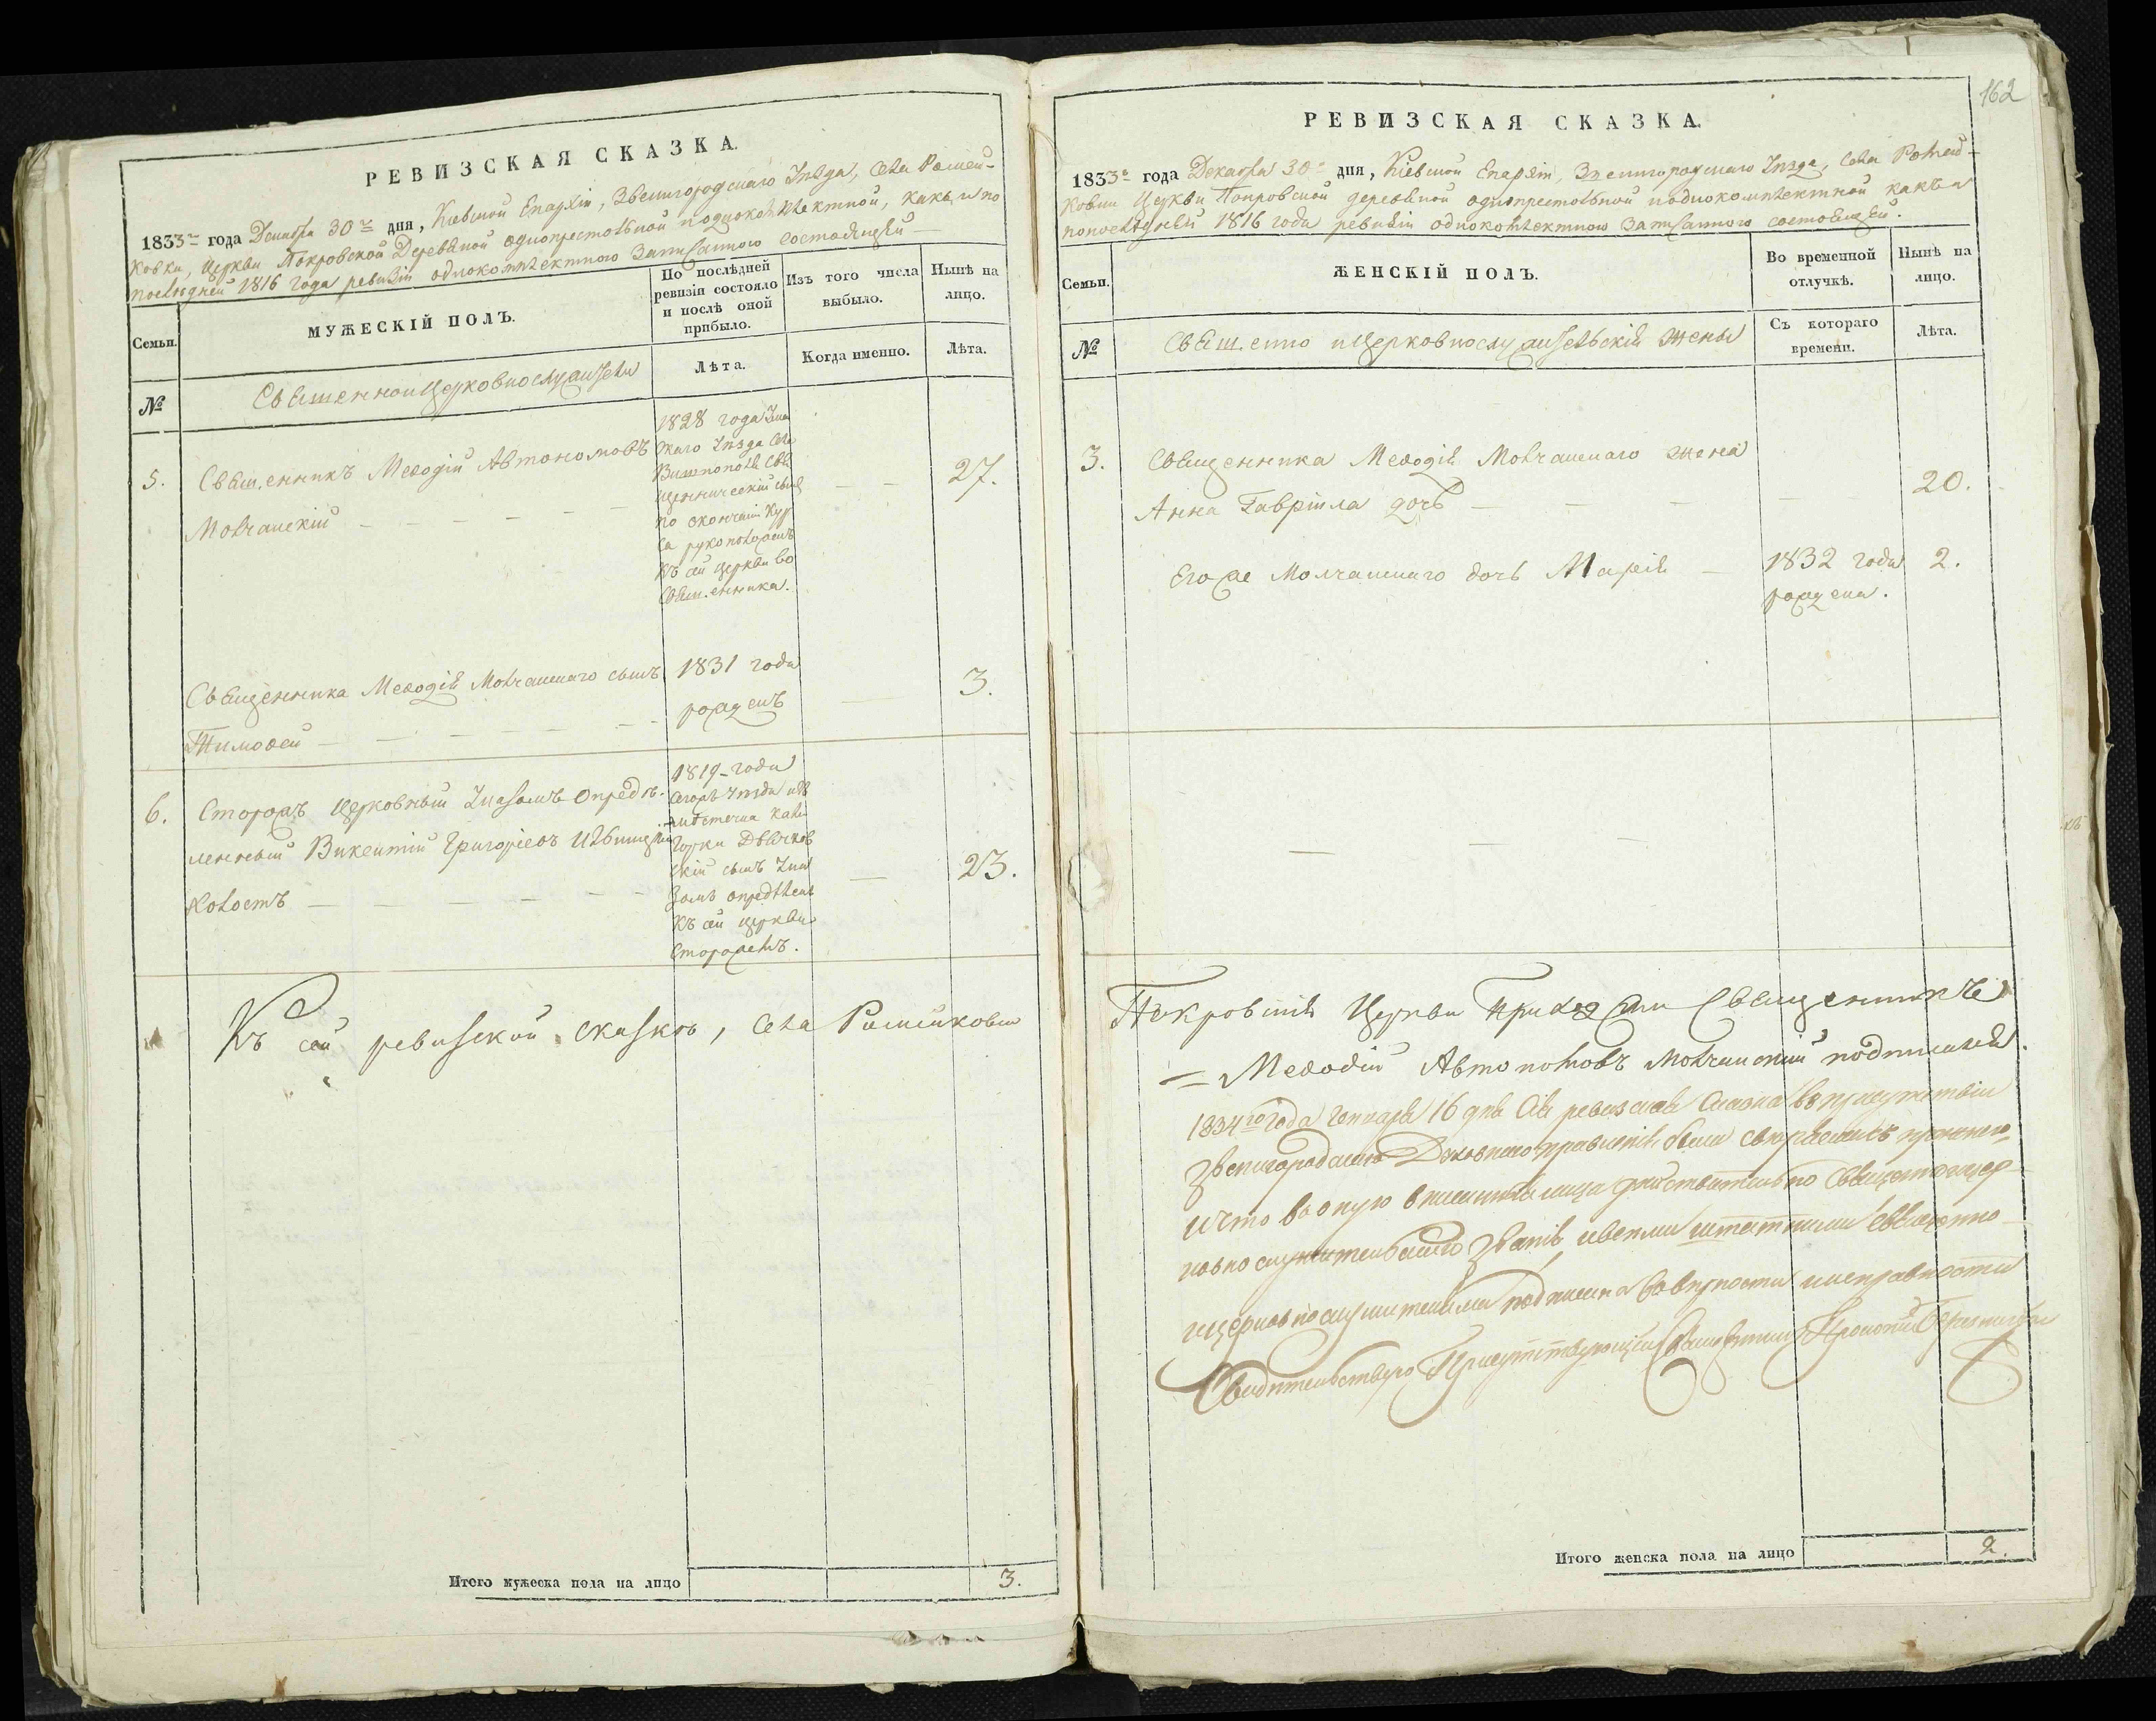 РЕВИЗСКАЯ СКАЗКА.
1833го года Декабря 30го дня, Кіевской Епархіи, Звенигородскаго Уѣзда, Села Ромей-
ковки, Церкви Покровской Деревяной однопрестольной и однокомплектной, какъ и по
последней 1816 года ревизіи однокомплектною записанною состоящей
Семьи.
МУЖЕСКІЙ ПОЛЪ.
По послѣдней ревизіи состояло и послѣ оной прибыло.
Изъ того числа выбыло.
Нынѣ на лицо.
№
Священно и Церковнослужители
Лѣта.
Когда именно.
Лѣта.
5.
Священникъ Меѳодій Автономовъ
Молчанскій
1828 года
скаго Уѣзда Села
Вишнополя Свя
щенническій сынъ
по окончаніи Кур
са рукоположенъ
къ сей церкви во
Священника.
27.
Священника Меѳодія Молчанскаго сынъ
Тимоѳей
1831 года
рожденъ
3.
6.
Сторожъ Церковный Указомъ опредѣ-
ленный Викентій Григорьевъ
холостъ
1819 года
Уѣзда
мѣстечка Кали
горки Дьячков
скій сынъ Ука
зомъ опредѣленъ
къ сей церкви
Сторожемъ.
23.
Къ сей ревизской сказкѣ, села Ромейковки
Итого мужеска пола на лицо
3.
162
РЕВИЗСКАЯ СКАЗКА.
1833го года Декабря 30го дня, Кіевской Епархіи, Звенигородскаго Уѣзда, Села Ромей-
ковки Церкви Покровской деревяной однопрестольной и однокомплектной какъ и
по последней 1816 года ревизіи однокомплектною записанною состоящей.
Семьи.
ЖЕНСКІЙ ПОЛЪ.
Во временной отлучкѣ.
Нынѣ на лицо.
№
Священно и Церковнослужительскія жены
Съ котораго времени.
Лѣта.
3.
Священника Меѳодія Молчанскаго жена
Анна Гавріила дочь
20.
Его же Молчанскаго дочь Марія
1832 года
рождена.
2.
Покровской Церкви Приходскій Священникъ
Меѳодій Автономовъ Молчанскій подписался.
1834го года Генваря 16 дня Сія ревизская Сказка въ присутствіи
Звенигородскаго Духовнаго правленія была
и что въ оную внесенныя лица дѣйствительно Священноцер-
ковнослужительскаго званія и всеми штатными священно
и церковнослужителями подписана во вѣрности и исправности
Свидѣтельствую Присутствующій Священникъ
Итого женска пола на лицо
2.